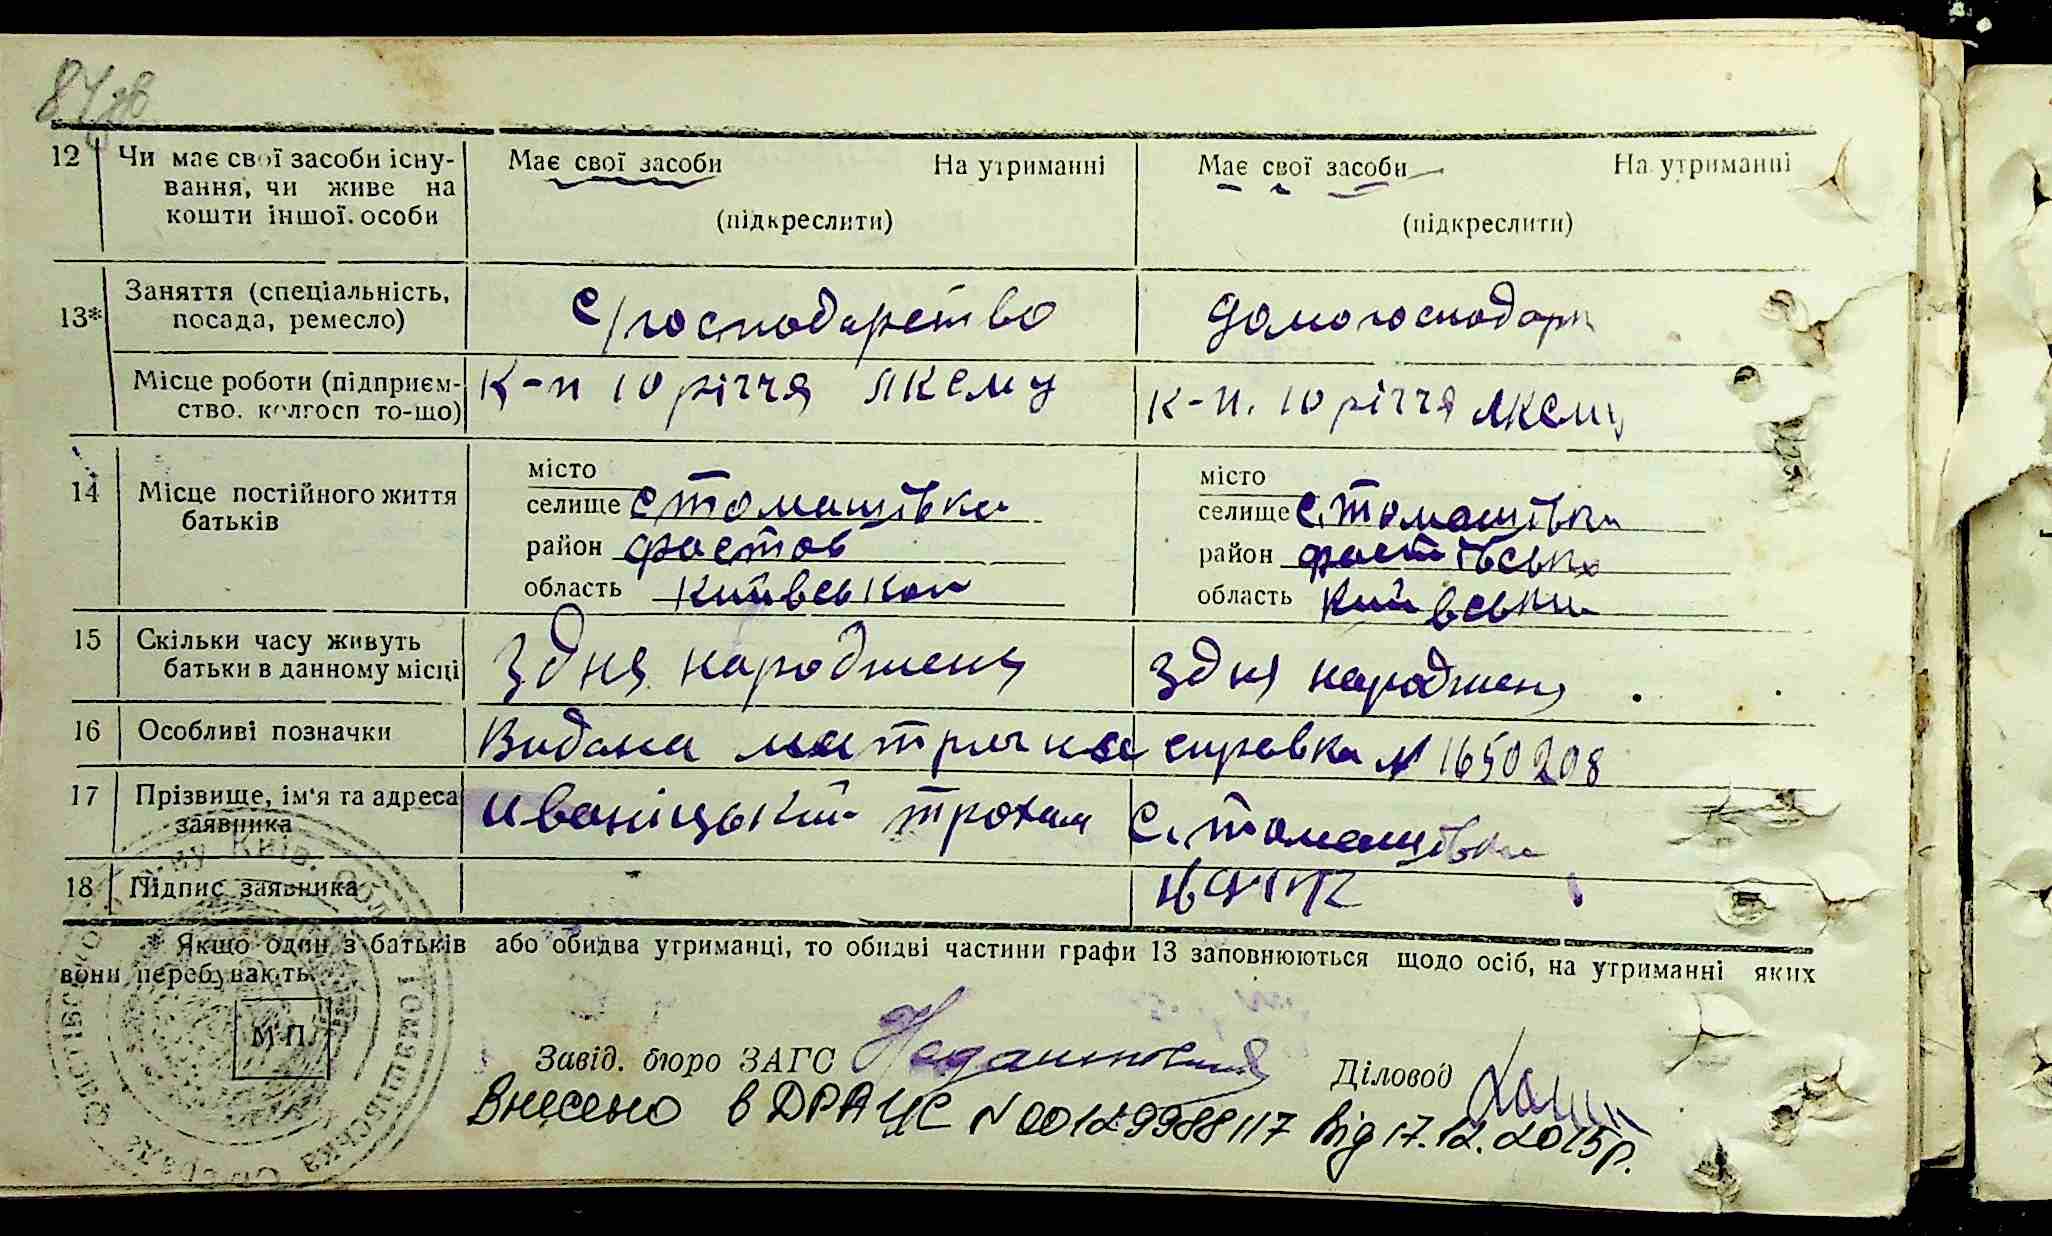 87 зв
12 Чи має свої засоби існу- Має свої засоби На утриманні Має свої засоби На утриманні
вання, чи живе на
кошти іншої особи (підкреслити) (підкреслити)
13* Заняття (спеціальність, с/господарство домогосподарк
посада, ремесло)
Місце роботи (підприєм- к-п 10 річчя ЛКСМУ к-п. 10 річчя ЛКСМУ
ство, колгосп то-що)
14 Місце постійного життя
батьків
місто місто
селище с Томашівка селище с. Томашівка
район Фастов район Фастівський
область Київської область Київська
15 Скільки часу живуть З дня народження З дня народження
батьки в данному місці
16 Особливі позначки Видана метрична справка № 1650208
17 Прізвище, ім'я та адреса Иваніцький Трохим с. Томашівка
заявника
18 Підпис заявника
* Якщо один з батьків або обидва утриманці, то обидві частини графи 13 заповнюються щодо осіб, на утриманні яких
вони перебувають
М.П.
Завід. бюро ЗАГС Діловод
Внесено в ДРАЦС № 00129988117 від 17.12.2015р.